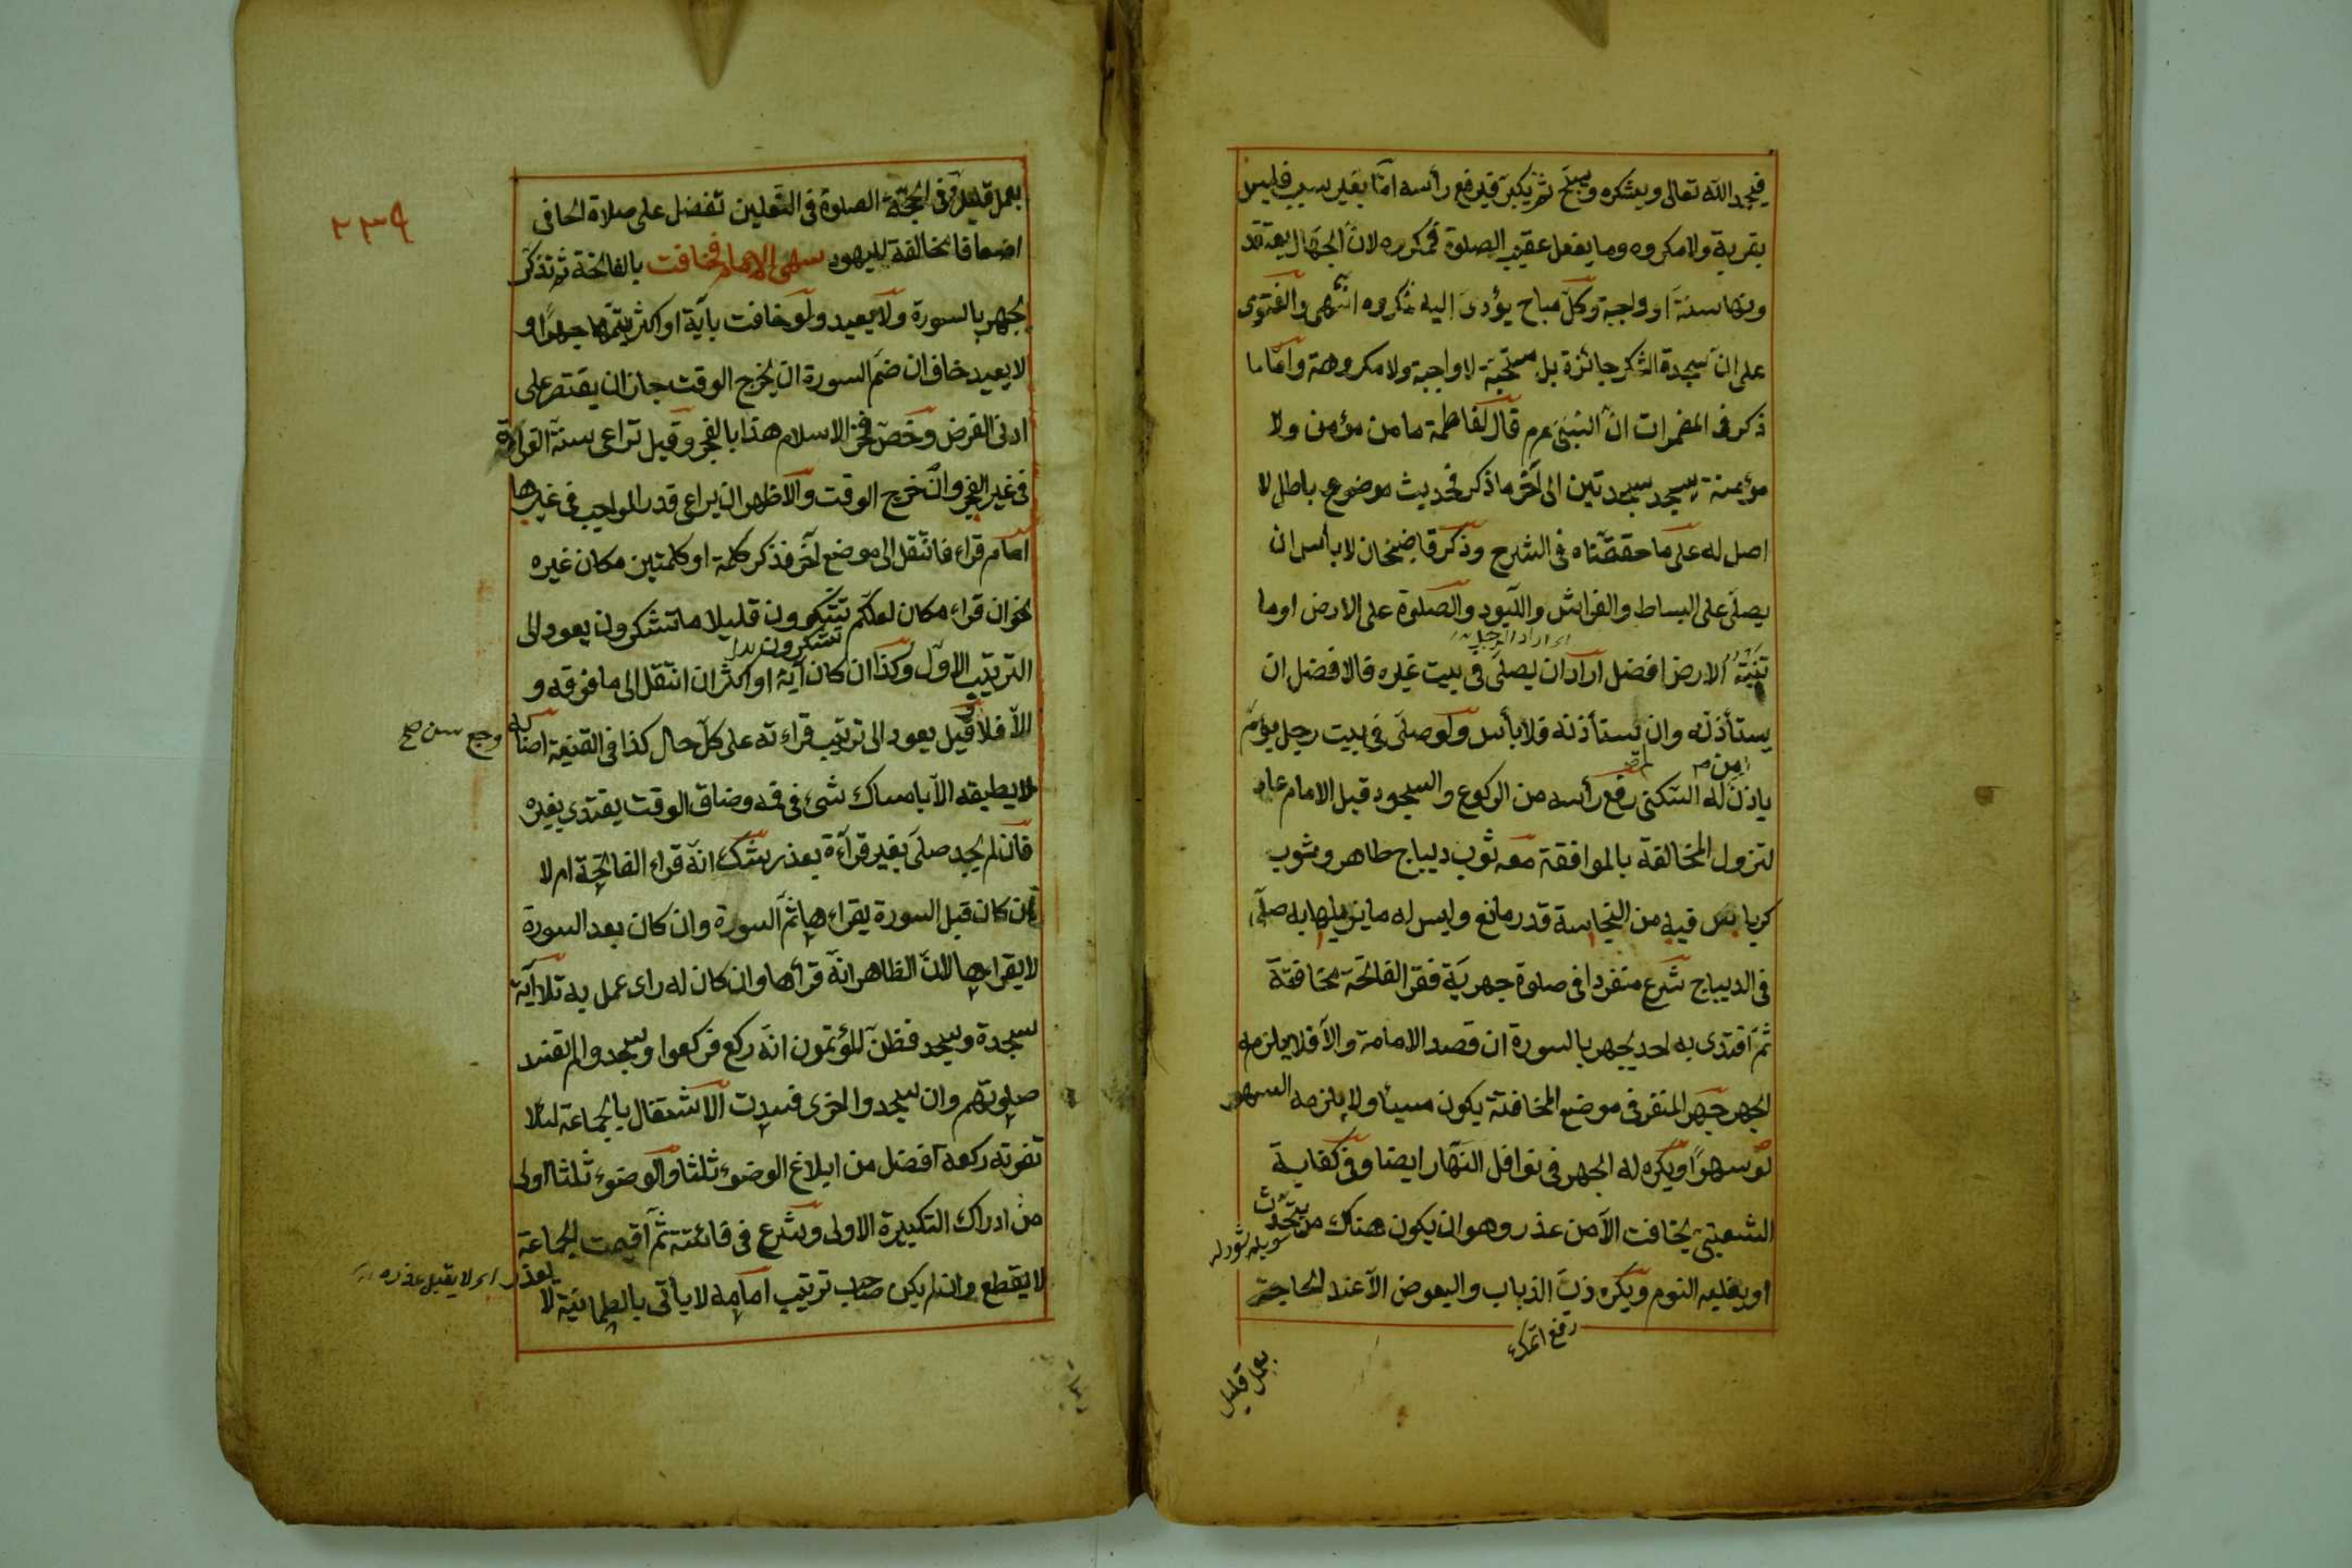 فيحمد الله تعالى ويشكره ويسبح ثم يكبر فيرفع رأسه اما بغير سبب فليس
بقربة ولا مكروه وما يفعل عقيب الصلوة فمكروه لان الجهال يعتقد
ونها سنة او واجبة وكل مباح يؤدى اليه فمكروه انتهى والفتوى
على ان سجدة الشكر جائزة بل مستحبة لا واجبة ولا مكروهة واما ما
ذكر فى المضمرات ان النبى عم قال لفاطمة ما من مؤمن ولا
مؤمنة يسجد سجدتين الى آخر ما ذكر فحديث موضوع باطل لا
اصل له على ما حققناه فى الشرح وذكر قاضيخان لا بأس ان
يصلى على البساط والفراش واللبود والصلوة على الارض او ما
اى اراد الرجل
تنبته الارض افضل اراد ان يصلى فى بيت غيره فالافضل ان
يستأذنه وان لم يستأذنه فلا بأس ولو صلى فى بيت رجل يؤم
باذن له السكنى رفع رأسه من الركوع والسجود قبل الامام عاد
لتزول المخالفة بالموافقة معه ثوب ديباج طاهر وثوب
كرباس فيه من النجاسة قدر مانع وليس له ما يزيلها به صلى
فى الديباج شرع منفردا فى صلوة جهرية فقرا الفاتحة مخافتة
ثم اقتدى به احد يجهر بالسورة ان قصد الامامة والا فلا يلزمه
الجهر جهر المنفرد فى موضع المخافتة يكون مسيئا ولا يلزمه السهو
لو سهوا ويكره له الجهر فى نوافل النهار ايضا وفى كفاية
الشعبى يخافت الا من عذر وهو ان يكون هناك من يتحدث
او يغلبه النوم ويكره ذب الذباب والبعوض الا عند الحاجة
بعمل قليل
بعمل قليل وفى الحجة الصلوة فى النعلين تفضل على صلاة الحافى
اضعافا مخالفة لليهود سهى الامام فخافت بالفاتحة ثم تذكر
يجهر بالسورة ولا يعيد ولو خافت بآية او اكثر يتمها جهرا و
لا يعيد خاف ان ضم السورة ان يخرج الوقت جاز ان يقتصر على
ادنى الفرض وخص فخر الاسلام هذا بالفجر وقيل تراعى سنة القراءة
فى غير الفجر وان خرج الوقت والاظهر ان يراعى قدر الواجب فى غيرها
امام قراء فانتقل الى موضع آخر فذكر كلمة او كلمتين مكان غيره
نحو ان قراء مكان لعلكم تشكرون قليلا ما تشكرون يعود الى
تشكرون
الترتيب الاول وكذا ان كان آية او اكثر ان انتقل الى ما فوقه و
الا فلا وقيل يعود الى ترتيب قراءته على كل حال كذا فى القنية اصابه وجع سن صح
لا يطيقه الا بامساك شئ فى فمه وضاق الوقت يقتدى بغيره
فان لم يجد صلى بغير قراءة يعذر شك انه قراء الفاتحة ام لا
ان كان قبل السورة يقراءها ثم السورة وان كان بعد السورة
لا يقراءها لان الظاهر انه قرأها وان كان له راى عمل به تلا آية
سجدة وسجد فظن المؤتمون انه ركع فركعوا وسجدوا لم تفسد
صلوتهم وان سجدوا اخرى فسدت الاشتغال بالجماعة لئلا
تفوته ركعة افضل من ابلاغ الوضوء ثلثا والوضوء ثلثا اولى
من ادراك التكبيرة الاولى وشرع فى فائتة ثم اقيمت الجماعة
لا يقطع وان لم يكن صاحب ترتيب امامه لا يأتى بالطمأنينة لا يعذر
اى لا يقبل عذره
٢٣٩